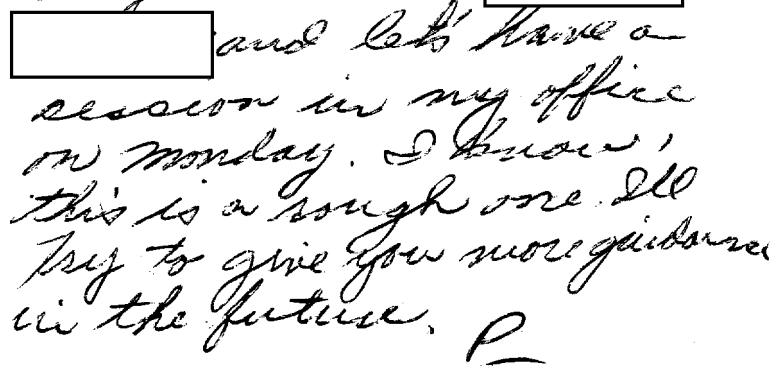 and let's have a
session in my office
on Monday. I know,
this is a rough one. I'll
try to give you more guidance
in the future. P